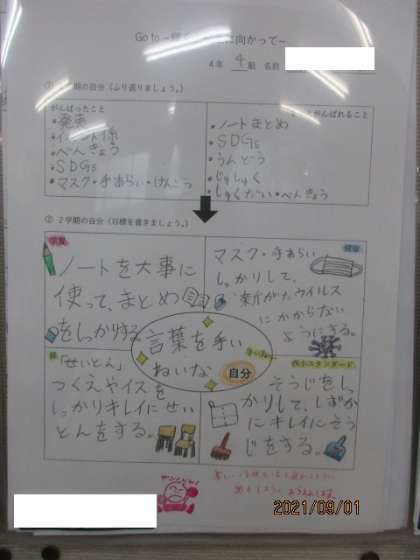 Go to
に向かって~
4年 4組 名前
学期の自分（ふり返りましょう。）
がんばったこと
がんばれること
・発表
・ノートまとめ
係
・SDGs
・べんきょう
・うんどう
・SDGs
・マスク・手あらい・けんこう
・べんきょう
② 2学期の自分（目標を書きましょう。）
学習
ノートを大事に
使って、まとめ
をしっかりする
健康
マスク・手あらい
しっかりして、
新がたウイルス
にかからない
ようにする。
言葉を
ねいな
自分
「せいとん」
つくえやイスを
しっかりキレイにせい
とんをする。
スタンダード
そうじをしっ
かりして、しずか
にキレイにそう
じをする。
2021/09/01